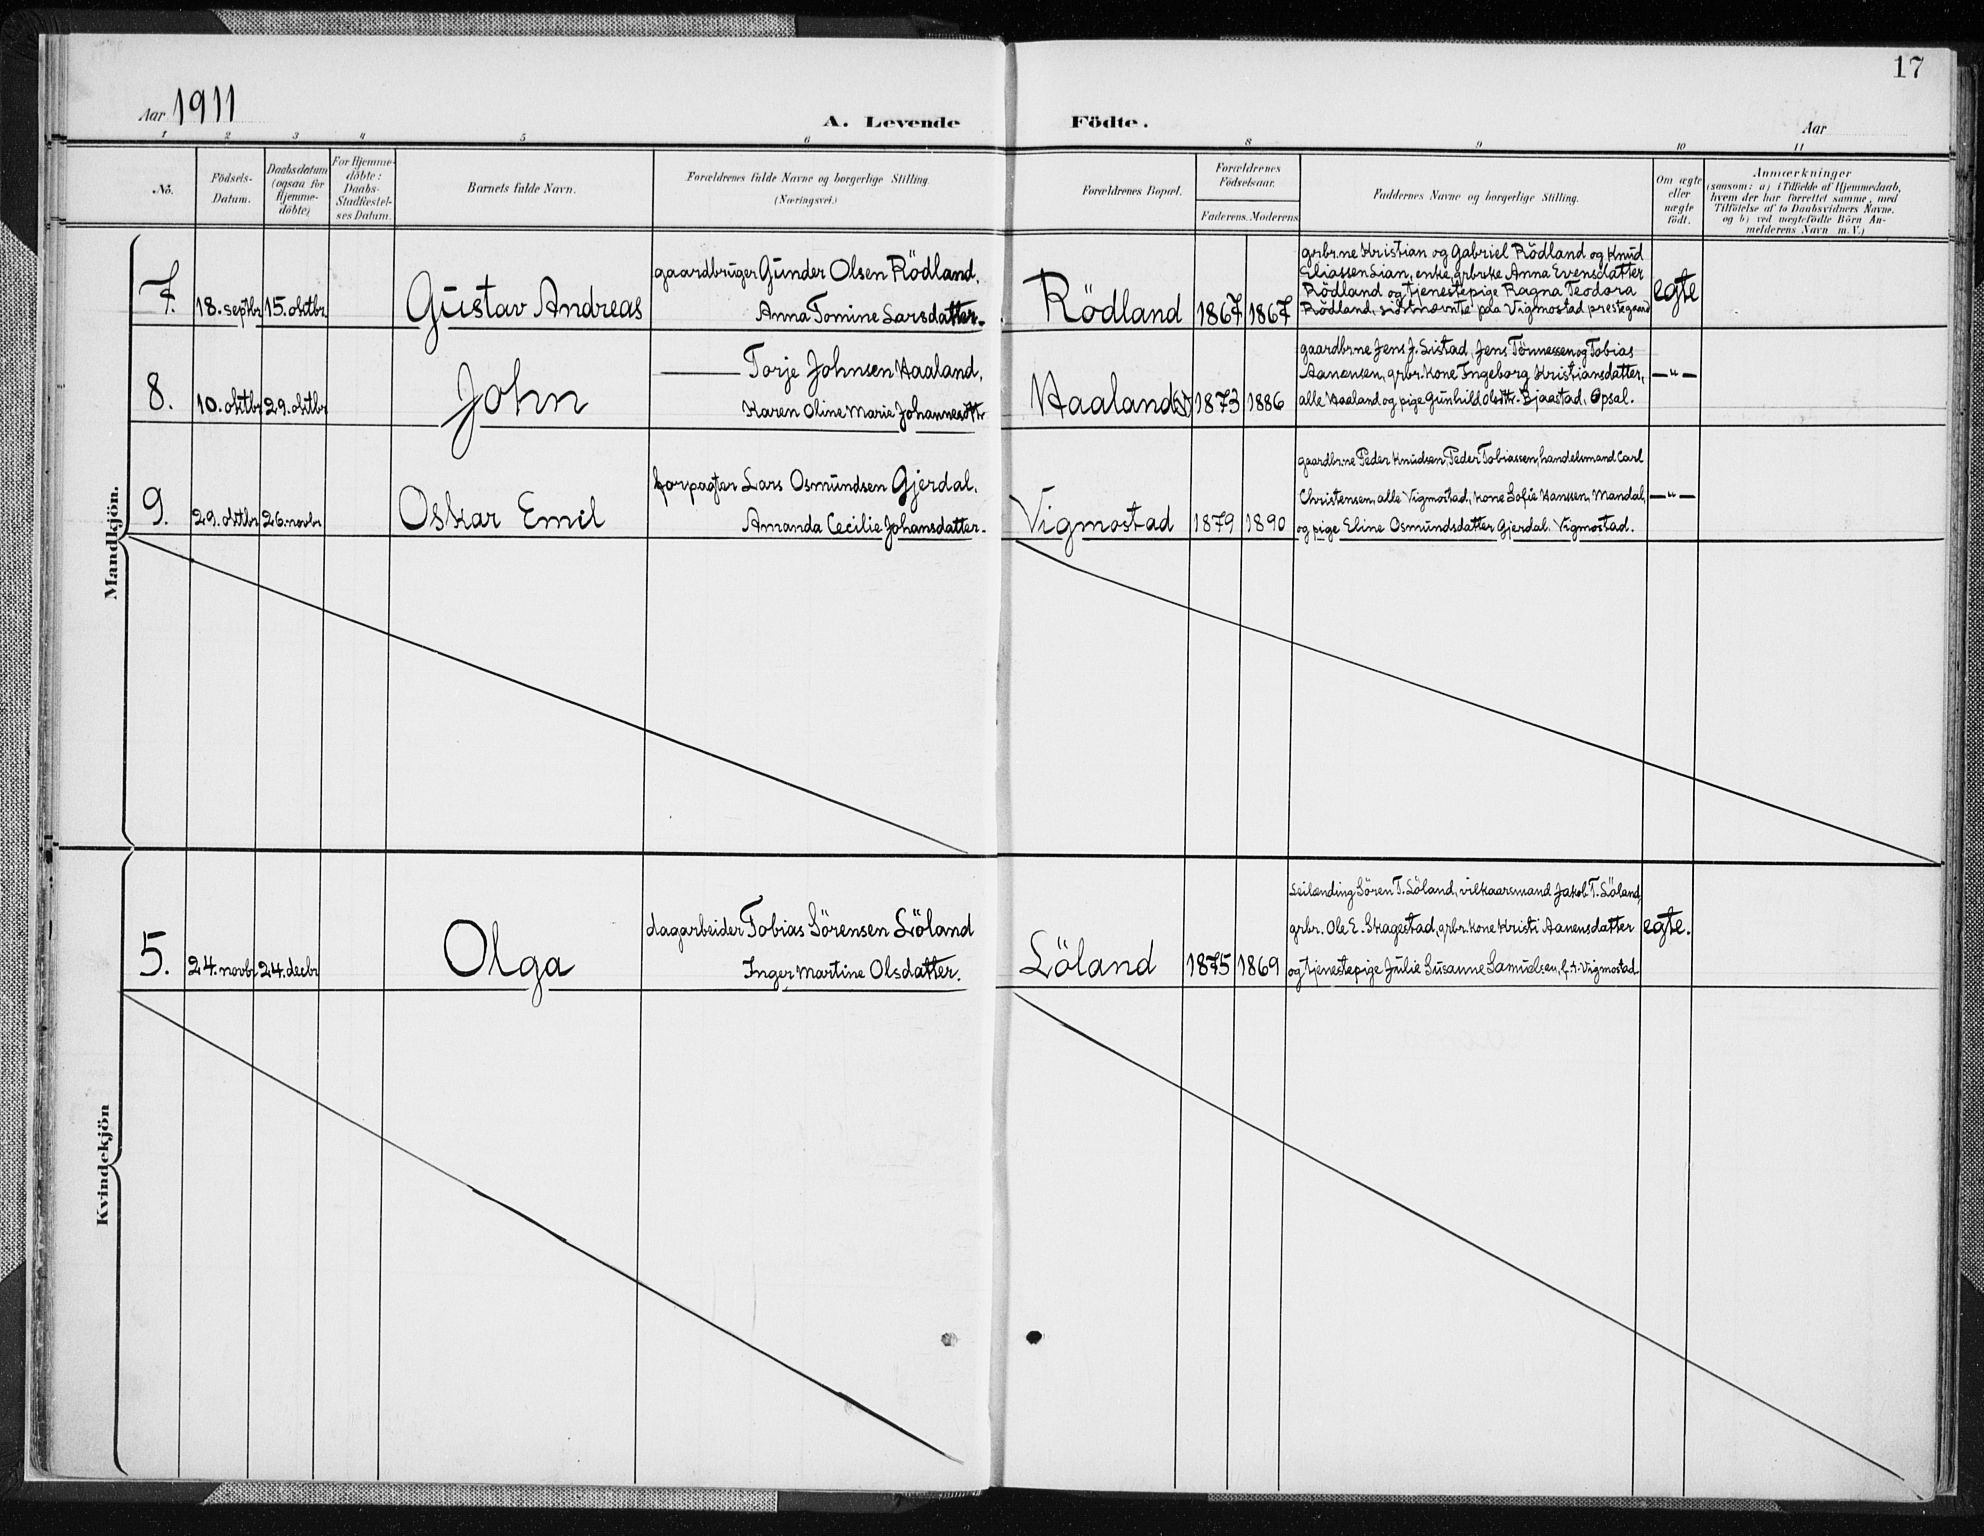 17
Aar 1911
A. Levende Födte.
Aar
1 2 3 4 5 6 8 9 10 11
No.
Födsels-
Datum.
Daabsdatum
(ogsaa for
Hjemme-
döbte)
For Hjemme-
döbte:
Daabs-
Stadfæstel-
ses Datum.
Barnets fulde Navn.
Forældrenes fulde Navne og borgerlige Stilling.
(Næringsvei.)
Forældrenes Bopæl.
Forældrenes
Födselsaar.
Faderens. Moderens.
Faddernes Navne og borgerlige Stilling.
Om ægte
eller
uægte
födt.
Anmærkninger
(saasom: a) i Tilfælde af Hjemmedaab,
hvem der har forrettet samme, med
Tilföielse af to Daabsvidners Navne.
og b) ved uegtefödte Börn An-
melderens Navn m. V.)
Mandkjön.
7.
18. septbr
15. oktbr
Gustav Andreas
gaardbruger Gunder Olsen Rödland,
Anna Tomine Larsdatter.
Rödland
1867
1867
grbr.ne Kristian og Gabriel Rödland og Knud
Eliassen Lian, enke, grbrske Anna Evensdatter
Rödland og tjenestepige Ragna Teodora
Rödland, sidstnævnte paa Vigmostad prestegaard
egte
8.
10. oktbr
29. oktbr
John
—— Torje Johnsen Haaland,
Karen Oline Marie Johannesdttr
Haaland
1873
1886
gaardbr.ne Jens J. Listad, Jens Tönnessen og Tobias
Aanensen, grbr. kone Ingeborg Kristiansdatter,
alle Haaland og pige Gunhild Olsdttr. Bjaastad, Opsal.
—"—
9.
29. oktbr
26. novbr
Oskar Emil
forpagter Lars Osmundsen Gjerdal,
Amanda Cecilie Johansdatter.
Vigmostad
1879
1890
gaardbr.ne Peder Knudsen, Peder Tobiassen, handelsmand Carl
Christensen, alle Vigmostad, kone Sofie Hanssen, Mandal,
og pige Eline Osmundsdatter Gjerdal. Vigmostad.
—"—
Kvindekjön
5.
24. novbr
24. decbr
Olga
dagarbeider Tobias Sörensen Löland
Inger Martine Olsdatter.
Löland
1875
1869
Leilænding Sören T. Löland, vilkaarsmand Jakob T. Löland,
grbr. Ole E. Skagestad, grbr. kone Kristi Aanensdatter
og tjenestepige Julie Susanne Samuelsen, f. t. Vigmostad
egte.